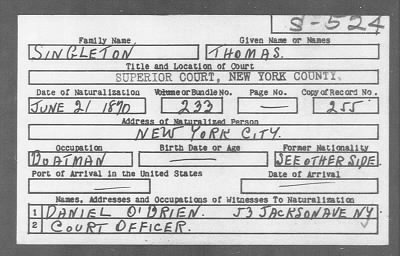 S-524
Family Name Given Name or Names
SINGLETON THOMAS.
Title and Location of Court
SUPERIOR COURT, NEW YORK COUNTY.
Date of Naturalization Volume or Bundle No. Page No. Copy of Record No.
JUNE 21 1870 233 — 255
Address of Naturalized Person
NEW YORK CITY.
Occupation Birth Date or Age Former Nationality
BOATMAN — SEE OTHER SIDE
Port of Arrival in the United States Date of Arrival
— —
Names, Addresses and Occupations of Witnesses To Naturalization
1 DANIEL O'BRIEN. 53 JACKSON AVE NY
2 COURT OFFICER.